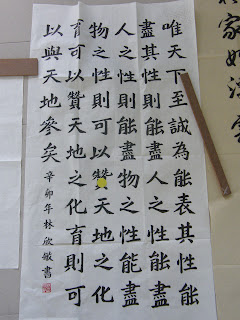 家如
唯天下至誠為能表其性能
盡其性則能盡人之性能盡
人之性則能盡物之性能盡
物之性則可以贊天地之化
育可以贊天地之化育則可
以與天地參矣 辛卯年林欣敏書